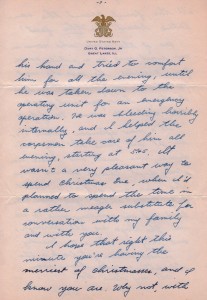 - 2 -
United States Navy
Gary G. Pederson, Jr.
Great Lakes, Ill.
his hand and tried to comfort
him for all the evening, until
he was taken down to the
operating unit for an emergency
operation. He was bleeding horribly
internally, and I helped the
corpsman take care of him all
evening, starting at
wasn't a very pleasant way to
spend Christmas Eve, when I'd
planned to spend the time in
a rather meagre substitute for
conversation with my family
and with you.
I hope that right this
minute you're having the
merriest of christmasses, and I
know you are. Why not, with